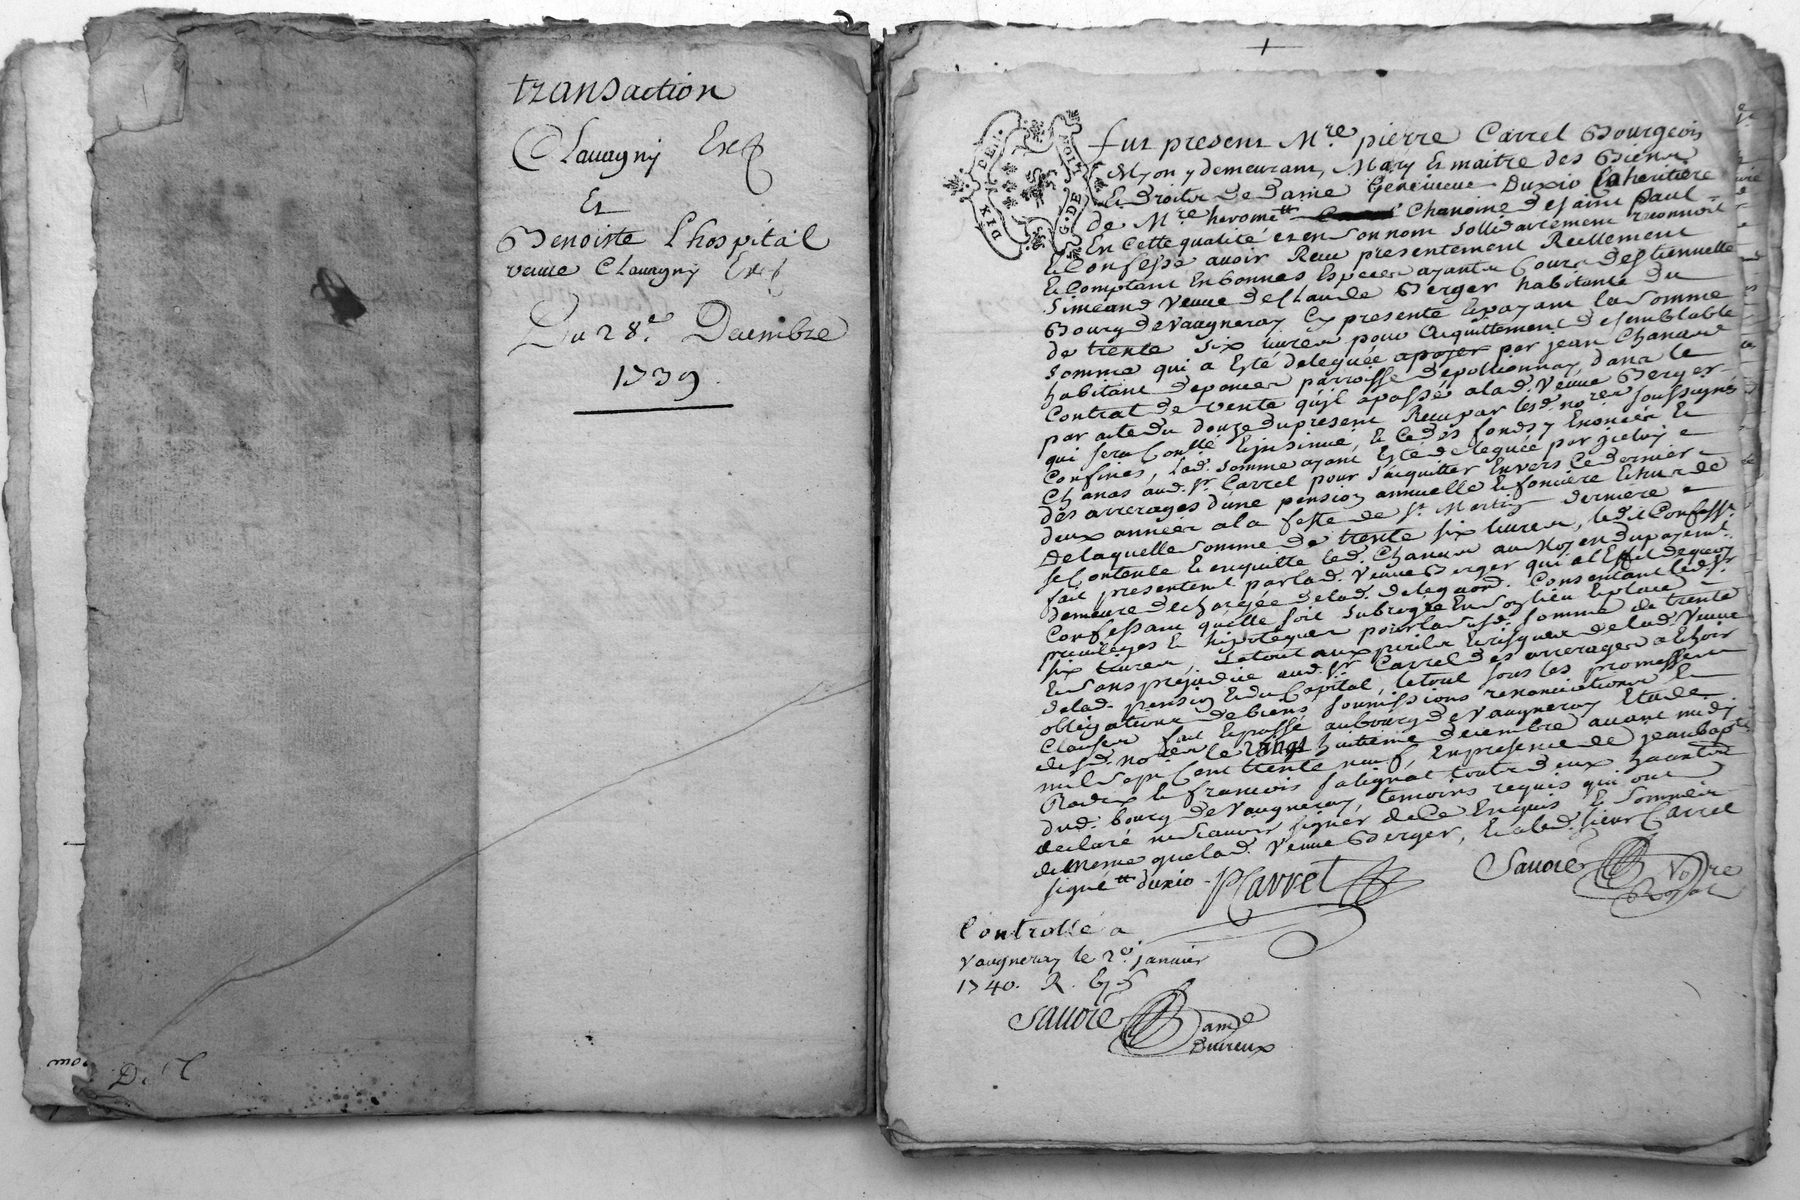 transaction
Chauagny Exp
Et
Benoiste Lhospital
veuue Chauagny Exp
Du 28e. Decembre
1739
D. C
DIX DEN.
G. DE LION
Fut present Mre pierre Carrel Bourgeois
Lyon y demeurant, Mary Et maitre des Biens
Et Droits De Dame Geneuieue Duxio Coheritiere
de Mre herome Chanoine de saint Paul
En Cette qualité et en son nom sollidairement reconnoit
Et Confesse auoir Receu presentement Reellement
Et Comptant En bonnes Especes ayant Cours d'Estiennette
Simeand Veuue de Claude Berger habitante du
Bourg de Vaugneray Cy presente Et payant la somme
de trente six liures pour acquittement de semblable
somme qui a Esté deleguée apayer par jean Chanas
habitant de poncer parroisse de pollionnay, dans le
Contrat de vente qu'il apassé alad. Veuue Berger
par acte du douze du present Receu par lesd. nores soussignés
qui sera Conllé Et jnsinué, Et Ce des fonds y Enoncés Et
Confinés, Lad. somme ayant Esté deleguée par jceluy
Chanas aud. Sr. Carrel pour s'acquitter Enuers Ce dernier
des arrerages d'une pension annuelle Et fonciere Echue de
deux années ala feste de St. Martin derniere
De laquelle somme de trente six liures, led. Sr Confesst.
se Contente Et enquitte led. Chanas au moyen du payemt.
fait presentemt par lad. Veuue Berger qui al Effet de quoy
demeure dechargée de lad. delegaon. Consentant led. Sr
Confessant qu'elle soit subrogée En son lieu Et place
priuileges Et hipoteques pour lasusd. somme de trente
six liures, Le tout aux perils Et risques de lad. Veuue
Et sans prejudice aud. Sr. Carrel des arrerages a Echoir
delad. pension Et du Capital, Le tout sous les promesses
obligations de biens soumissions renonciations Et
Clauses fait Et passé au bourg de Vaugneray Etude
desd. nores le vingt huitieme decembre auant midy
mil sept Cent trente neuf, En presence de jean bapte
Et francois salignat touts deux habitants
dud. bourg de Vaugneray, temoins requis qui ont
declaré ne scauoir signer de Ce Enquis Et sommés
de meme que lad. Veuue Berger, Et aled. sieur Carrel
signé tt duxio PCarrel Sauoie Nore
Royal
Controllé a
Vaugneray le 2e. januier
1740. R.
Sauoie